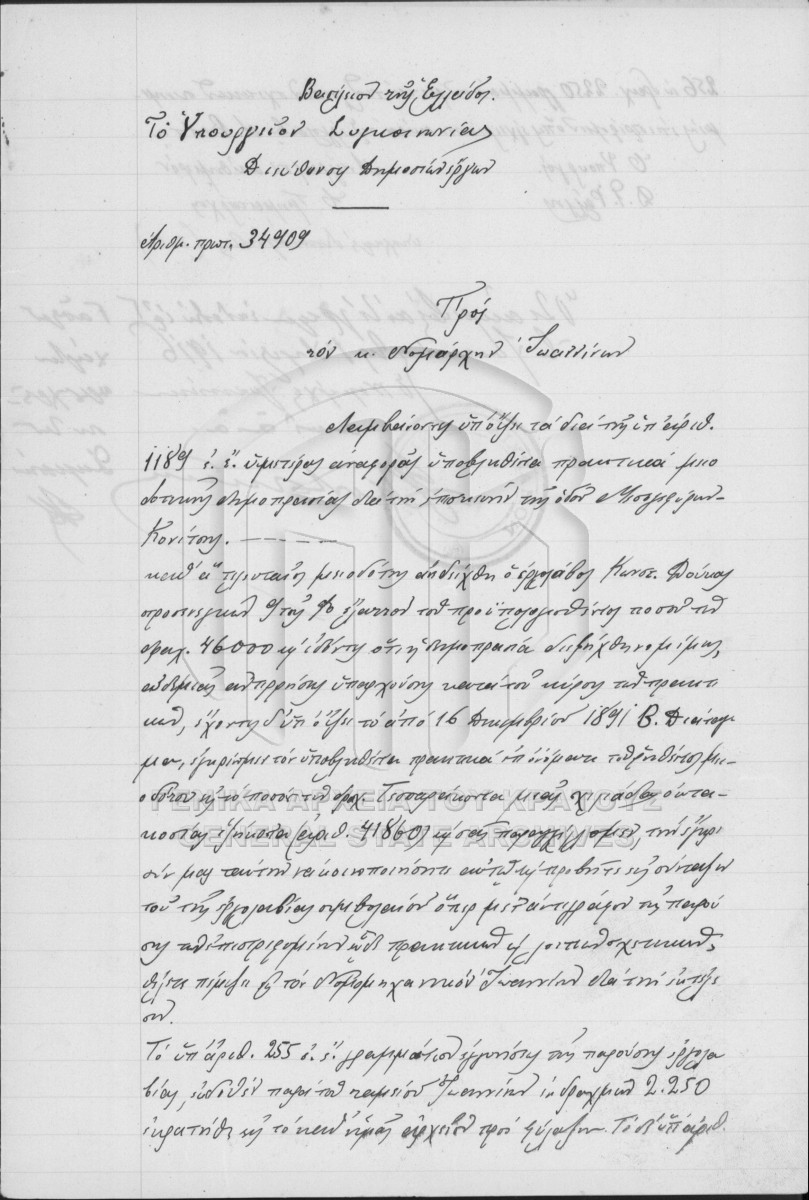 Βασίλειον τῆς Ἑλλάδος.
Τὸ Ὑπουργεῖον Συγκοινωνίας
Διεύθυνσις Δημοσίων ἔργων
Ἀριθμ. πρωτ. 34909
Πρὸς
τὸν κ. Νομάρχην Ἰωαννίνων
Λαμβάνοντες ὑπ' ὄψει τὰ διὰ τῆς ὑπ' ἀριθ.
1189 ἐ. ἔ. ὑμετέρας ἀναφορᾶς ὑποβληθέντα πρακτικὰ μειο
δοτικῆς δημοπρασίας διὰ τὴν ἐπισκευὴν τῆς ὁδοῦ Μπογεφύρων-
Κονίτσης.
καθ' ἃ τελευταῖος μειοδότης ἀνεδείχθη ὁ ἐργολάβος Κωνσ. Δούκας
προσενεγκὼν 9 τοῖς % ἔλαττον τοῦ προϋπολογισθέντος ποσοῦ τῶν
δραχ. 46000 κ' ἰδόντες ὅτι ἡ δημοπρασία διεξήχθη νομίμως,
οὐδεμιᾶς ἀντιρρήσεως ὑπαρχούσης κατὰ τοῦ κύρους τῶν πρακτι
κῶν, ἔχοντες δ' ὑπ' ὄψει τὸ ἀπὸ 16 Δεκεμβρίου 1891 Β. Διάταγ
μα, ἐγκρίνομεν τὰ ὑποβληθέντα πρακτικὰ ἐπ' ὀνόματι τοῦ ῥηθέντος μει-
οδότου εἰς τὸ ποσὸν τῶν δραχ. Τεσσαράκοντα μιᾶς χιλιάδων ὀκτα-
κοσίας ἑξήκοντα (ἀριθ. 41860) κ' σᾶς παραγγέλλομεν, τὴν ἔγκρι
σίν μας ταύτην νὰ κοινοποιήσητε αὐτῷ κ' προβῆτε εἰς σύνταξιν
τοῦ τῆς ἐργολαβίας συμβολαίου ὅπερ μετ' ἀντιγράφου τῆς παρού
σης τῶν ἐπιστρεφομένων ὧδε πρακτικῶν κ' λοιπῶν σχετικῶν,
θέλετε πέμψει εἰς τὸν Νομομηχανικὸν Ἰωαννίνων διὰ τὴν ἐκτέλε
σιν.
Τὸ ὑπ' ἀριθ. 255 ἐ. ἔ. γραμμάτιον ἐγγυήσεως τῆς παρούσης ἐργολα
βίας, ἐκδοθὲν παρὰ τοῦ ταμείου Ἰωαννίνων ἐκ δραχμῶν 2.250
ἐκρατήθη εἰς τὸ καθ' ἡμᾶς ἀρχεῖον πρὸς φύλαξιν. Τὸ δ' ὑπ' ἀριθ.
ΓΕΝΙΚΑ ΑΡΧΕΙΑ ΤΟΥ ΚΡΑΤΟΥΣ
GENERAL STATE ARCHIVES